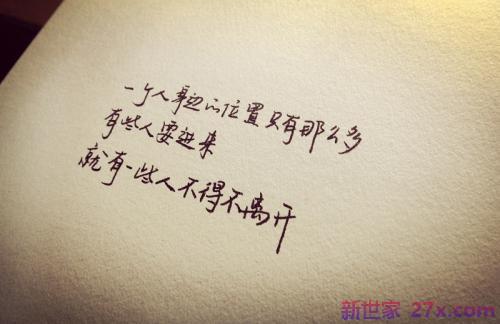 一个人身边的位置只有那么多
有些人要进来
就有一些人不得不离开
新世家 27x.com